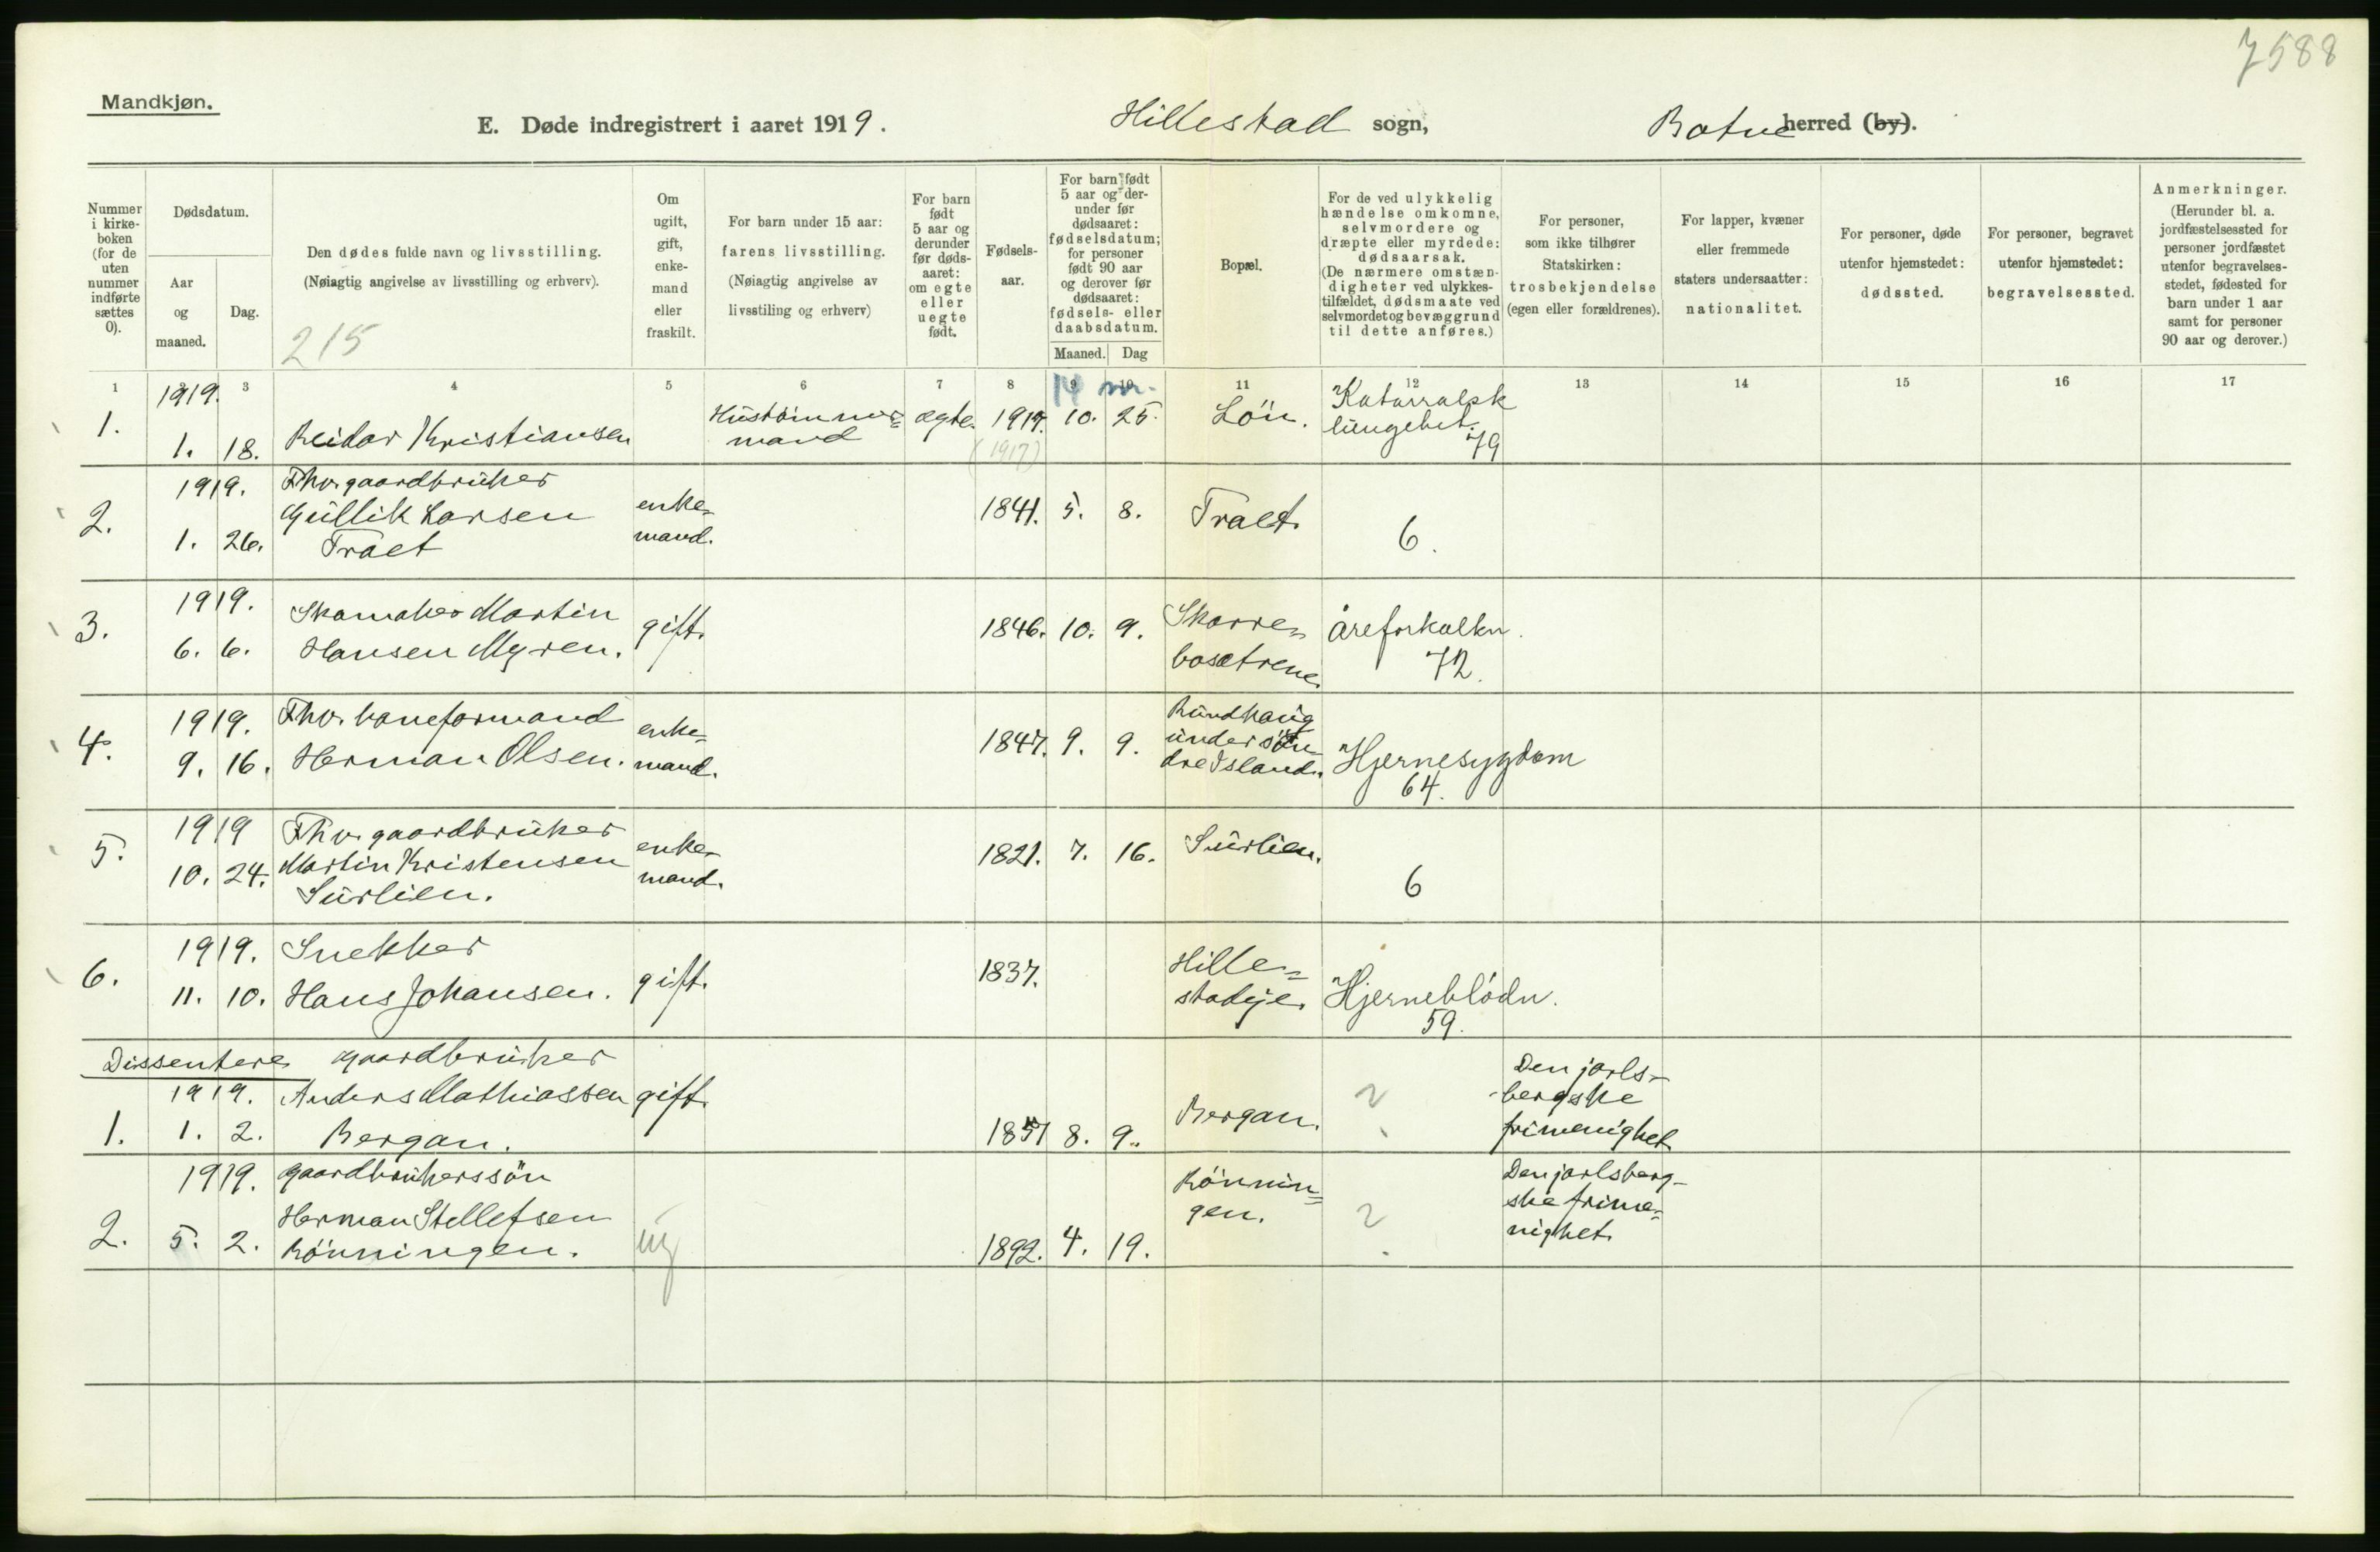 7588
Mandkjøn.
E. Døde indregistrert i aaret 1919. Hillestad sogn, Botne herred (by).
Nummer i kirke-boken (for de uten nummer indførte sættes 0).
Dødsdatum.
Aar og maaned.
Dag.
Den dødes fulde navn og livsstilling.
(Nøiagtig angivelse av livsstilling og erhverv).
215
Om ugift, gift, enke-mand eller fraskilt.
For barn under 15 aar:
farens livsstilling.
(Nøiagtig angivelse av livsstiling og erhverv)
For barn født 5 aar og derunder før døds-aaret: om egte eller uegte født.
Fødsels-aar.
For barn født 5 aar og der-under før dødsaaret: fødselsdatum; for personer født 90 aar og derover før dødsaaret: fødsels- eller daabsdatum.
Maaned. Dag
Bopæl.
For de ved ulykkelig hændelse omkomne, selvmordere og dræpte eller myrdede: dødsaarsak.
(De nærmere omstæn-digheter ved ulykkes-tilfældet, dødsmaate ved selvmordet og bevæggrund til dette anføres.)
For personer, som ikke tilhører Statskirken: trosbekjendelse (egen eller forældrenes).
For lapper, kvæner eller fremmede staters undersaatter: nationalitet.
For personer, døde utenfor hjemstedet: dødssted.
For personer, begravet utenfor hjemstedet: begravelsessted.
Anmerkninger.
(Herunder bl. a. jordfæstelsessted for personer jordfæstet utenfor begravelses-stedet, fødested for barn under 1 aar samt for personer 90 aar og derover.)
1 3 4 5 6 7 8 9 10 11 12 13 14 15 16 17
14 m.
1. 1919. 1. 18. Reidar Kristiansen Hustømmermand ægte. 1917. (1917) 10. 25. Løn. Katarralsk lungebet. 79
2. 1919. 1. 26. Fhv. gaardbruker
Gullik Larsen
Traet enke-mand. 1841. 5. 8. Traet. 6.
3. 1919. 6. 6. Skomaker Martin
Hansen Myren. gift. 1846. 10. 9. Skorre-
bosætrene. åreforkalkn. 72.
4. 1919. 9. 16. Fhv. baneformand
Herman Olsen. enke-mand. 1847. 9. 9. Rundhaug
under søn-
dre Island. Hjernesygdom 64.
5. 1919 10. 24. Fhv. gaardbruker
Martin Kristensen
Surlien. enke-mand. 1821. 7. 16. Surlien. 6
6. 1919. 11. 10. Snekker
Hans Johansen. gift. 1837. Hille-
stadeje. Hjerneblødn. 59.
Dissentere
1. 1919. 1. 2. gaardbruker
Anders Mathiassen
Bergan. gift. 1851 8. 9. Bergan. ? Den jarls-
bergske
frimenighet.
2. 1919. 5. 2. gaardbrukerssøn
Herman Stellefsen
Rønningen. ug 1892. 4. 19. Rønnin-
gen. ? Den jarlsberg-
ske frime-
nighet.